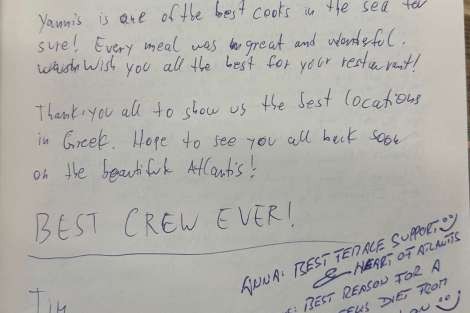 Yannis is one of the best cooks in the sea for
sure! Every meal was great and wonderful.
Wish you all the best for your restaurant!
Thank you all to show us the best locations
in Greek. Hope to see you all back soon
on the beautiful Atlantis!
BEST CREW EVER!
Tim
ANNA: BEST FEMALE SUPPORT :)
& HEART OF ATLANTIS
: BEST REASON FOR A
DIET FROM
ON :)